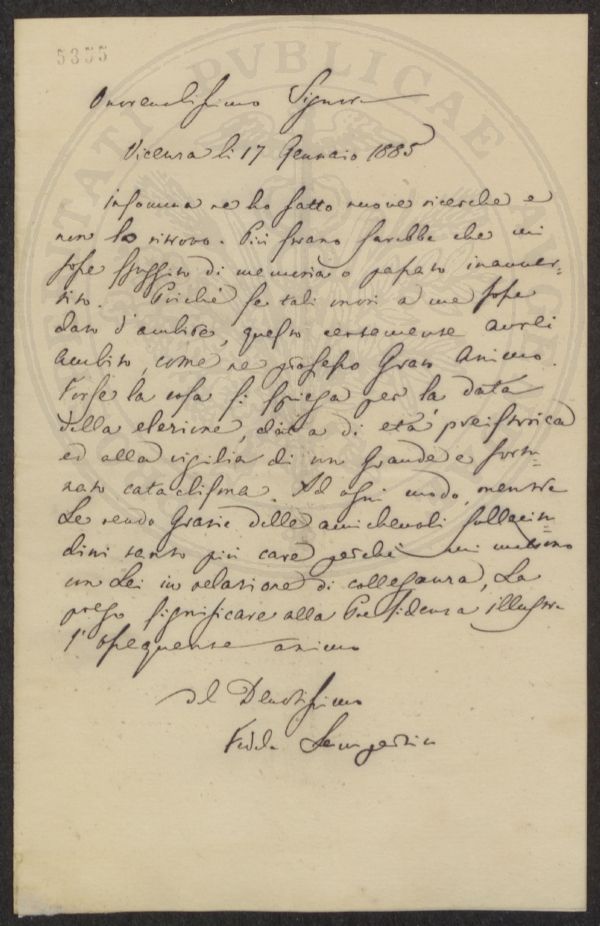 5355
Onorevolissimo Signore
Vicenza li 17 Gennaio 1885
Insomma ne ho fatto nuove ricerche e
non lo ritrovo. Più strano sarebbe che mi
fosse sfuggito di memoria o passato inavver-
tito. Poichè se tali onori a me fosse
dato d'ambire, questo certamente avrei
ambito, come ne professo Grato Animo.
Forse la cosa si spiega per la data
della elezione, data di età preistorica
ed alla vigilia di un Grande e fortu-
nato cataclisma. Ad ogni modo, mentre
Le rendo Grazie delle amichevoli sollecitu-
dini tanto più care perchè mi mettono
con Lei in relazione di colleganza, La
prego significare alla Presidenza illustre
l'ossequente animo
del Devotissimo
Fedele Lampertico